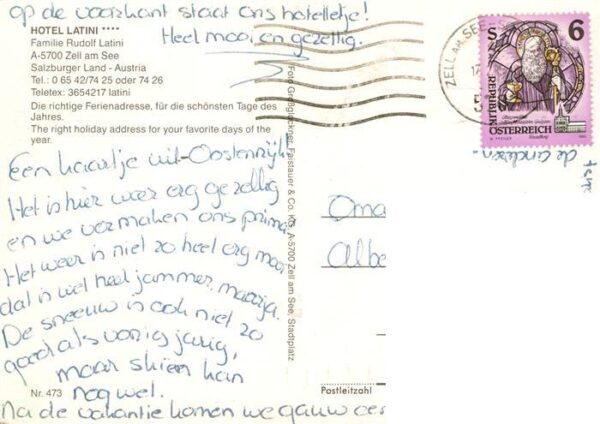 op de voorkant staat ons hotelletje!
Heel mooi en gezellig.
HOTEL LATINI ****
Familie Rudolf Latini
A-5700 Zell am See
Salzburger Land - Austria
Tel.: 0 65 42/74 25 oder 74 26
Teletex: 3654217 latini
Die richtige Ferienadresse, für die schönsten Tage des
Jahres.
The right holiday address for your favorite days of the
year.
Een kaartje uit Oostenrijk
Het is hier weer erg gezellig
en we vermaken ons prima.
Het weer is niet zo heel erg mooi
dat is wel heel jammer, maarja.
De sneeuw is ook niet zo
goed als vorig jarig,
maar skiën kan
nog wel.
Na de vakantie komen we gauw eer
Nr. 473
Foto Großglockner, Faistauer & Co. KG, A-5700 Zell am See, Stadtplatz
ZELL AM SEE
6
S
REPUBLIK
ÖSTERREICH
de anderen.
Oma
Albe
Postleitzahl